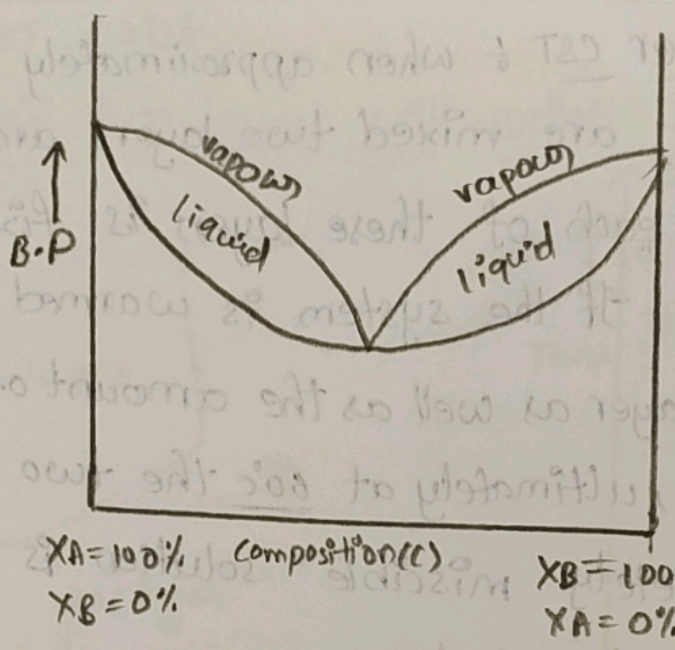 vapour
liquid
vapour
liquid
B.P
XA=100%
XB=0%
Composition(C)
XB=100
XA=0%